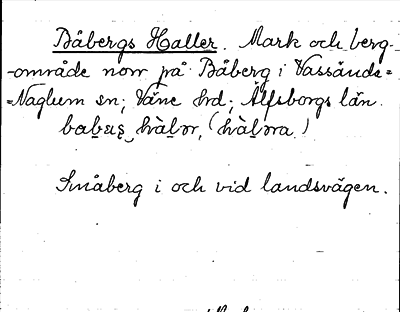 Båbergs Haller. Mark och berg-
-område norr på Båberg i Vassända=
=Naglum sn; Väne hrd; Älfsborgs län.
Småberg i och vid landsvägen.